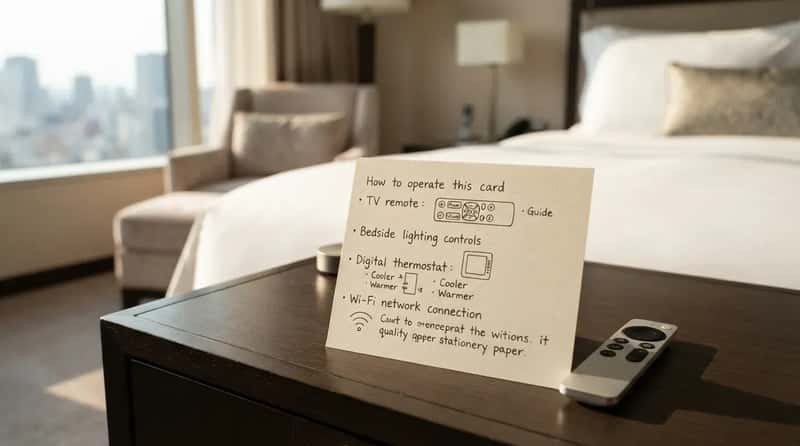 How to operate this card
• TV remote: • Guide
• Bedside lighting controls
• Digital thermostat:
• Cooler • Cooler
• Warmer • Warmer
• Wi-Fi network connection
the witions. it
quality stationery paper.